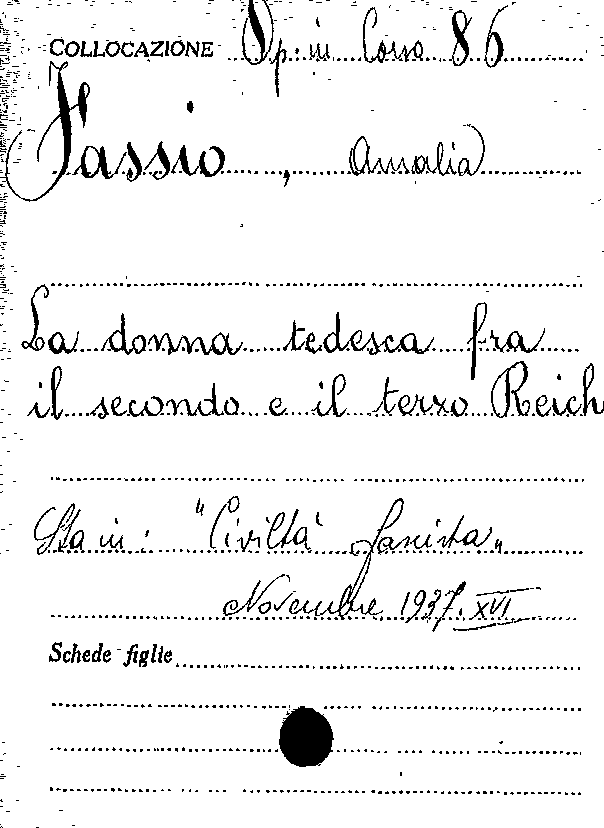 COLLOCAZIONE Op. in Corso 86
Fassio, Amalia
La donna tedesca fra
il secondo e il terzo Reich
Sta in: "Civiltà fascista"
Novembre 1937. XVI
Schede figlie